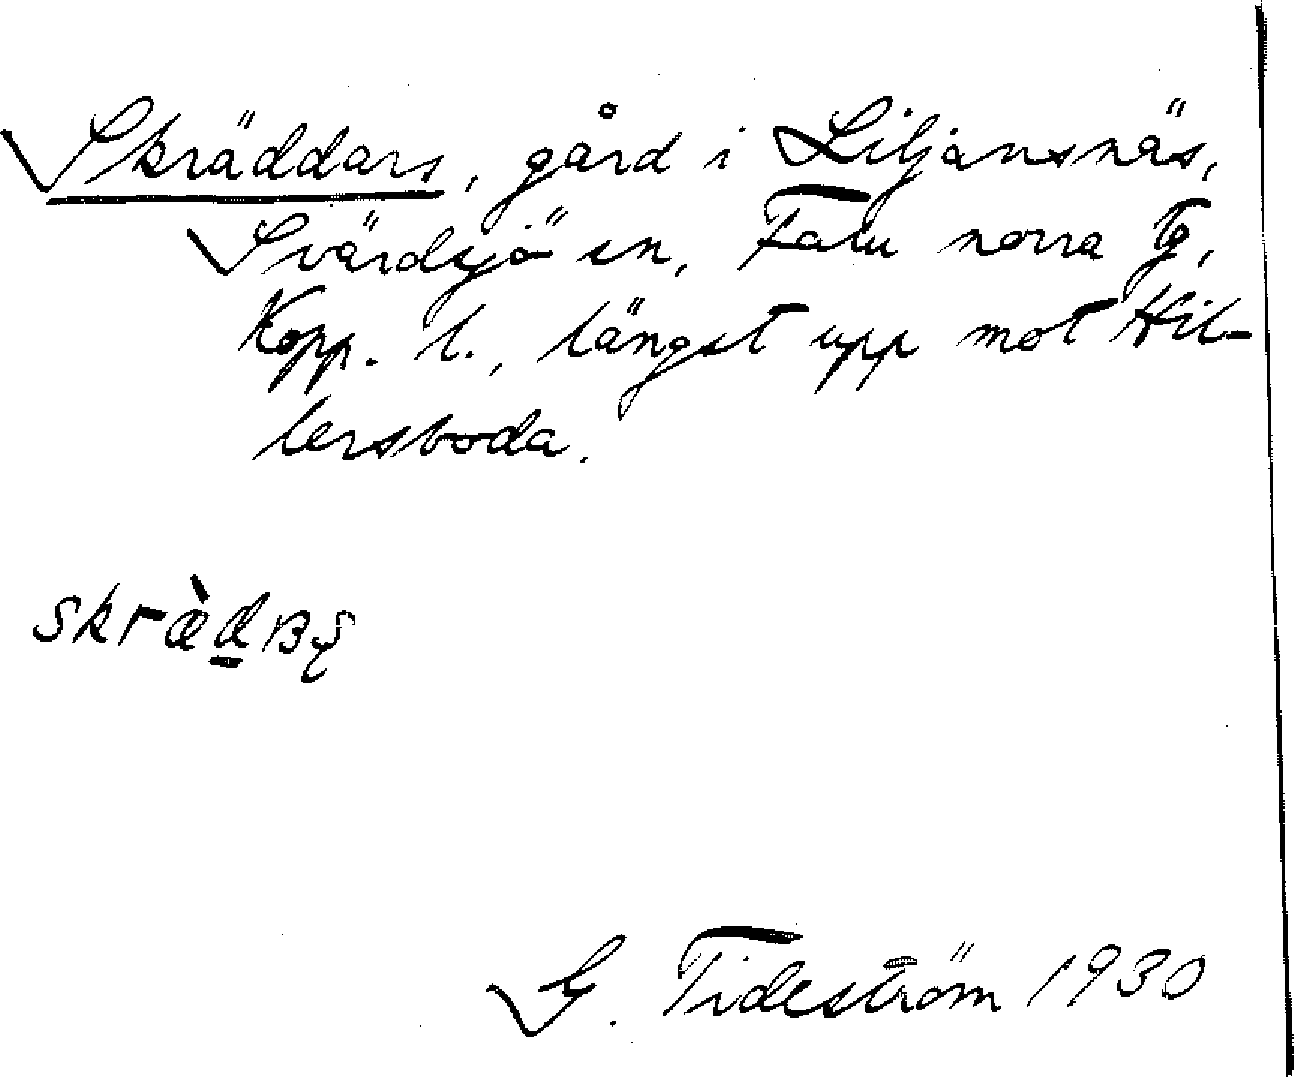 Skräddars, gård i Liljansnäs,
Svärdsjö sn, Falu norra tg,
Kopp. l., längst upp mot Hil-
lersboda.
G. Tideström 1930